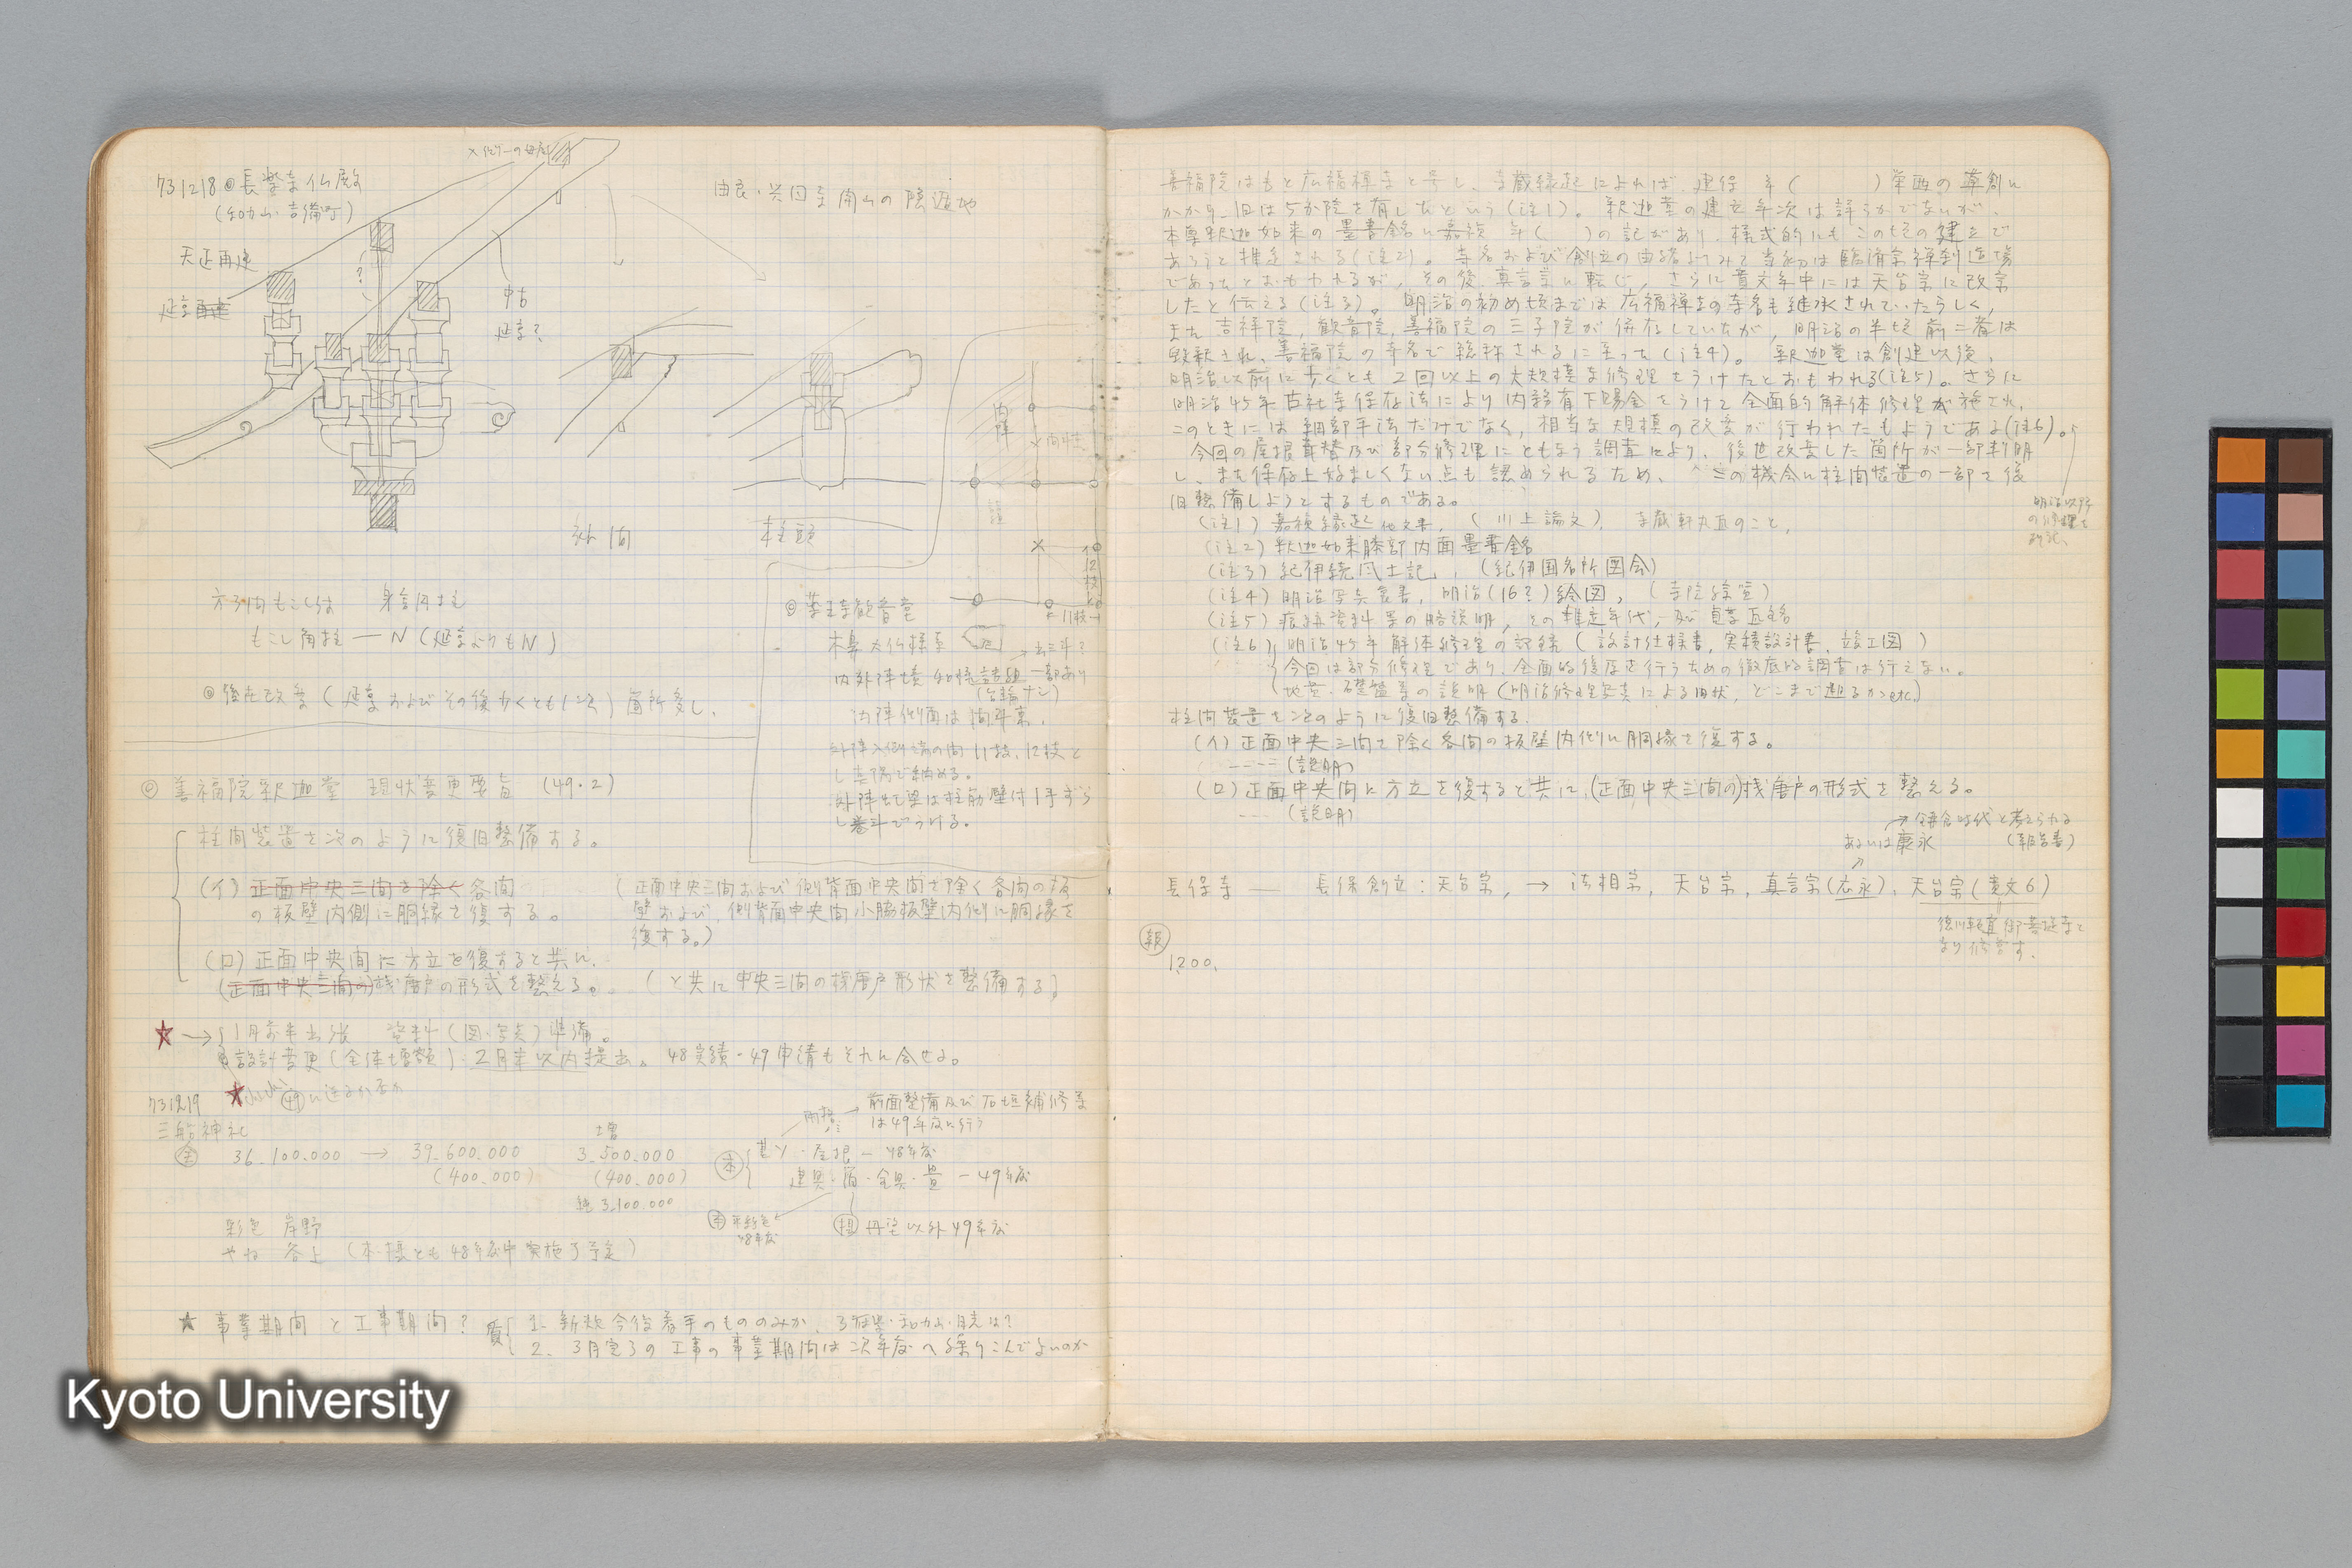 731218 ◎長楽寺仏殿
(和歌山・吉備町)
由良・興国寺開山の隠遁地
天正再建
延享再建
中古
延享?
外間
柱頭
内陣
方3間もこし
もこし角柱 — N (延享よりもN)
◎後世改変 (延享およびその後少くとも1次) 箇所多し、
◎薬王寺観音堂
木鼻 大仏様系
内外陣境 和様詰組 一部あり
(台輪ナシ)
内陣側面は間斗束、
外陣入側端の間 11枝、12枝と
し 隅で納める。
外陣 梁は柱筋壁付1手
し巻斗でうける。
12枝
11枝
◎ 善福院釈迦堂 現状変更要旨 (49.2)
柱間装置を次のように復旧整備する。
(イ) 正面中央三間を除く各間
の板壁内側に胴縁を復する。
(正面中央三間および側背面中央間を除く各間の板
壁および、側背面中央間小脇板壁内側に胴縁を
復する。)
(ロ) 正面中央間に方立を復すると共に、
(正面中央三間の)桟唐戸の形式を整える。
(と共に中央三間の桟唐戸形状を整備する)
★→ 1月前半出張 資料(図・写真)準備。
設計変更(全体増額) 2月末以内提出。 48実績・49申請もそれに合せる。
731219
三船神社
全 36,100,000 → 39,600,000
増
3,500,000
(400,000) (400,000)
純 3,100,000
前面整備及び石垣補修等
は49年度に行う
本 屋根 — 48年度
建具・金具・畳 — 49年度
48年度
摂 丹塗以外49年度
彩色 岸野
やね 谷上 (本・摂とも48年度中実施了予定)
★ 事業期間と工事期間?
質 1. 新規今後着手のもののみか、
2. 3月完了の工事の事業期間は次年度へ繰りこんでよいのか
善福院はもと広福禅寺と号し、寺蔵縁起によれば、建保 年( )栄西の草創に
かかり、旧は5か院を有したという(注1)。 釈迦堂の建立年次は詳らかでないが、
本尊釈迦如来の墨書銘に嘉禎 年( )の記があり、様式的にもこの頃の建立で
あろうと推定される(注2)。 寺名および創立の由緒よりみて当初は臨済宗禅刹道場
であったとおもわれるが、その後、真言宗に転じ、さらに寛文年中には天台宗に改宗
したと伝える(注3)。 明治の初め頃までは広福禅寺の寺名も継承されていたらしく、
また吉祥院、観音院、善福院の三子院が併存していたが、明治の半頃前二者は
毀釈され、善福院の寺名で総称されるに至った(注4)。 釈迦堂は創建以後、
明治以前に少くとも2回以上の大規模な修理をうけたとおもわれる(注5)。さらに
明治45年古社寺保存法により内務省下賜金をうけて全面的解体修理が施され、
このときには細部手法だけでなく、相当な規模の改変が行われたもようである(注6)。
今回の屋根葺替及び部分修理にともなう調査により、後世改変した箇所が一部判明
し、また保存上好ましくない点も認められるため、 この機会に柱間装置の一部を復
旧整備しようとするものである。
明治以外
の修理も
附記、
(注1) 嘉禎縁起 他文書、(川上論文)、 寺蔵軒丸瓦のこと、
(注2) 釈迦如来膝部内面墨書銘
(注3) 紀伊続風土記、(紀伊国名所図会)
(注4) 明治写真裏書、明治(16?)絵図、(寺院録)
(注5) 痕跡資料等の略説明、その推定年代、及び瓦銘
(注6) 明治45年解体修理の記録 (設計仕様書、実積設計書、竣工図)
今回は部分修理であり、全面的復原を行うための徹底的調査は行えない。
地覆・礎盤等の説明 (明治修理写真による旧状、どこまで遡るか etc.)
柱間装置を次のように復旧整備する。
(イ) 正面中央三間を除く各間の板壁内側に胴縁を復する。
---- (説明)
(ロ) 正面中央間に方立を復すると共に、(正面中央三間の)桟唐戸の形式を整える。
--- (説明)
→ 鎌倉時代と考えられる
あるいは康永 (報告書)
長保寺 — 長保創立:天台宗、→ 法相宗、天台宗、真言宗(応永)、天台宗(寛文6)
徳川頼宣御菩提寺と
なり修営す。
報
1200、
Kyoto University